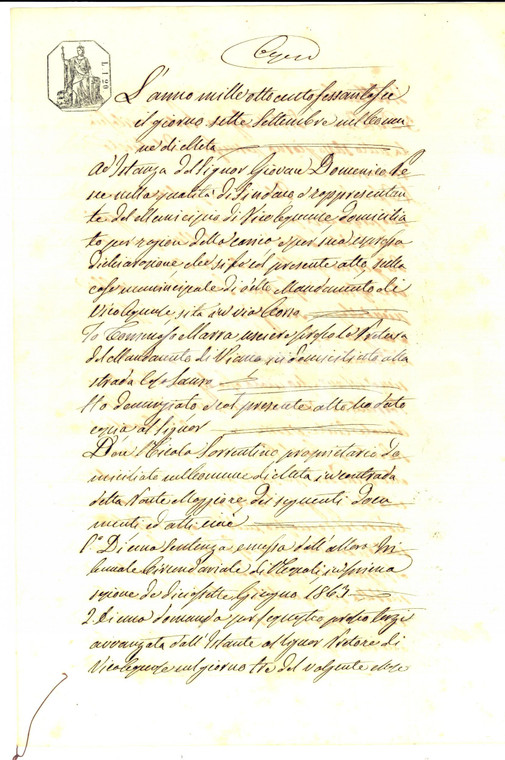 Copia
L. 1 20
L'anno mille ottocento sessantasei
il giorno sette Settembre nel Comu-
ne di Meta
Ad Istanza del Signor Giovan Domenico
nella qualità di Sindaco e rappresentan-
te del Municipio di Vico Equense domicilia-
to per ragion della carica e per sua espressa
dichiarazione che si fa col presente atto, nella
casa municipale di Mandamento di
Vico Equense sita in via Corso
Io Tommaso Marra usciere presso la Pretura
del Mandamento di domiciliato alla
strada Lauro
Ho denunziato e col presente atto ho dato
copia al Signor
Don Nicola Sorrentino proprietario do-
miciliato nel Comune di Meta in contrada
detta Ponte Maggiore, dei seguenti docu-
menti ed atti cioè
1.° Di una Sentenza emessa dall'allora Tri-
bunale Circondariale di Napoli, in prima
sezione de diciassette Giugno 1863
2. Di una domanda per sequestro presso terzi
avvanzata dall'Istante al Signor Pretore di
Vico Equense nel giorno tre del volgente mese